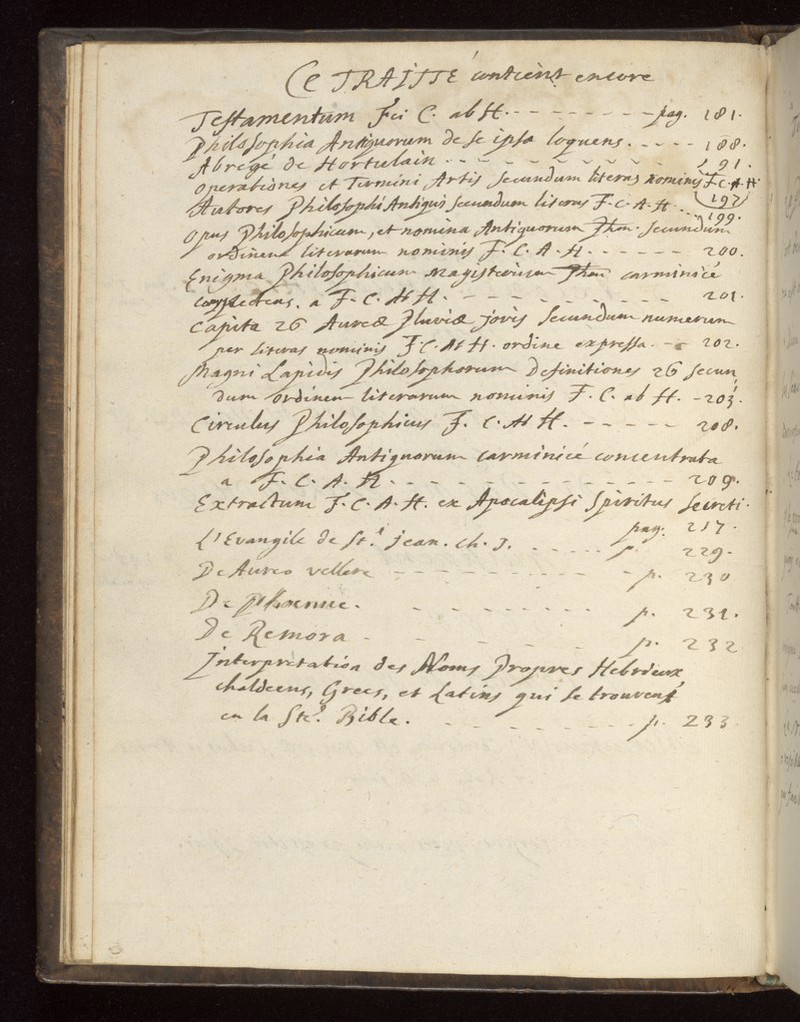 Ce TRAITTÉ contient encore
Testamentum Fci C. ab H. - - - - - - - - pag. 181.
Philosophia Antiquorum de se ipsa loquens. - - - - - 188.
Abregé de Hortulain - - - - - - - - - 191.
Operationes et Termini Artis secundum literas nominis F. C. A. H.
197
Autores Philosophi Antiqui secundum literas F. C. A. H. - - 199.
Opus Philosophicum, et nomina Antiquorum Phm. secundum
ordinem literarum nominis F. C. A. H. - - - - - - 200.
Enigma Philosophicum Magisterium Phm carminicé
complectens. a F. C. Ab H. - - - - - - - - 201.
Capita 26 Aureæ Pluviæ jovis secundum numerum
per literas nominis F. C. Ab H. ordine expressa. - - 202.
Magni Lapidis Philosophorum Definitiones 26 secun
dum ordinem literarum nominis F. C. ab H. - 203.
Circulus Philosophicus F. C. Ab H. - - - - - 208.
Philosophia Antiquorum carminicé concentrata
a F. C. A. H. - - - - - - - - - - - - 209.
Extractum F. C. A. H. ex Apocalipsi Spiritus secreti.
pag. 217.
L'Evangile de St. jean. Ch. J. - - - - - p. 229.
De Aureo vellere - - - - - - - - - p. 230
De Phoenice. - - - - - - - p. 231.
De Remora - - - - - - p. 232
Interpretation des Noms Propres Hebrieux,
chaldeens, Grecs, et Latins qui se trouvent
en la Ste. Bible. - - - - - - p. 233.